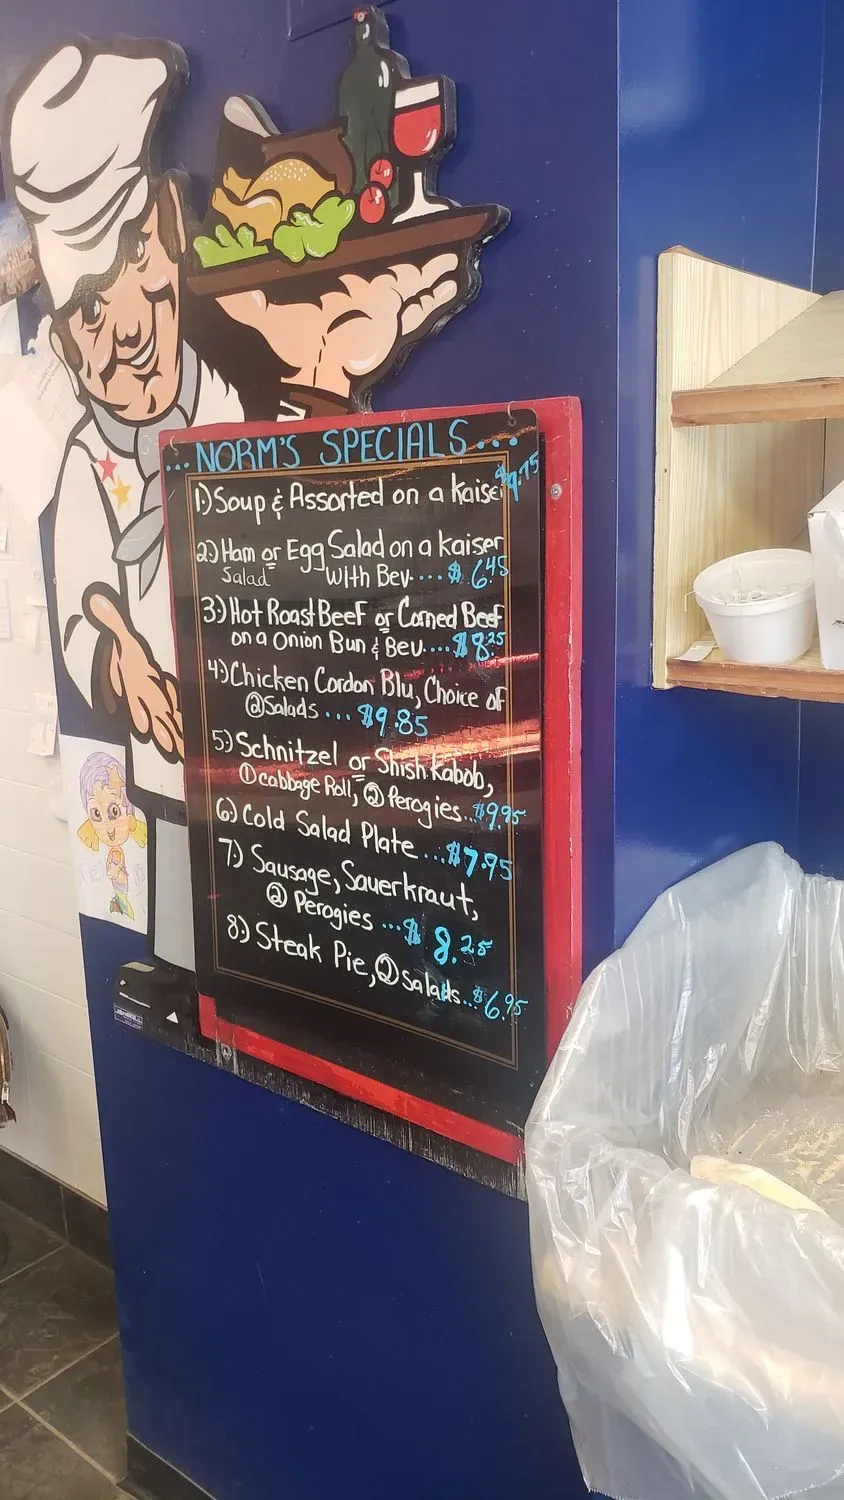 ...NORM'S SPECIALS...
$9.75
1.) Soup & Assorted on a Kaiser
2.) Ham or Egg Salad on a Kaiser
Salad with Bev.... $6.45
3.) Hot Roast Beef or Corned Beef
on a Onion Bun & Bev.... $8.25
4.) Chicken Cordon Blu, Choice of
② Salads ... $9.85
5.) Schnitzel or Shish Kabob,
① Cabbage Roll, ② Perogies... $9.95
6.) Cold Salad Plate ... $7.95
7.) Sausage, Sauerkraut,
② Perogies ... $8.25
8.) Steak Pie, ② Salads... $6.95